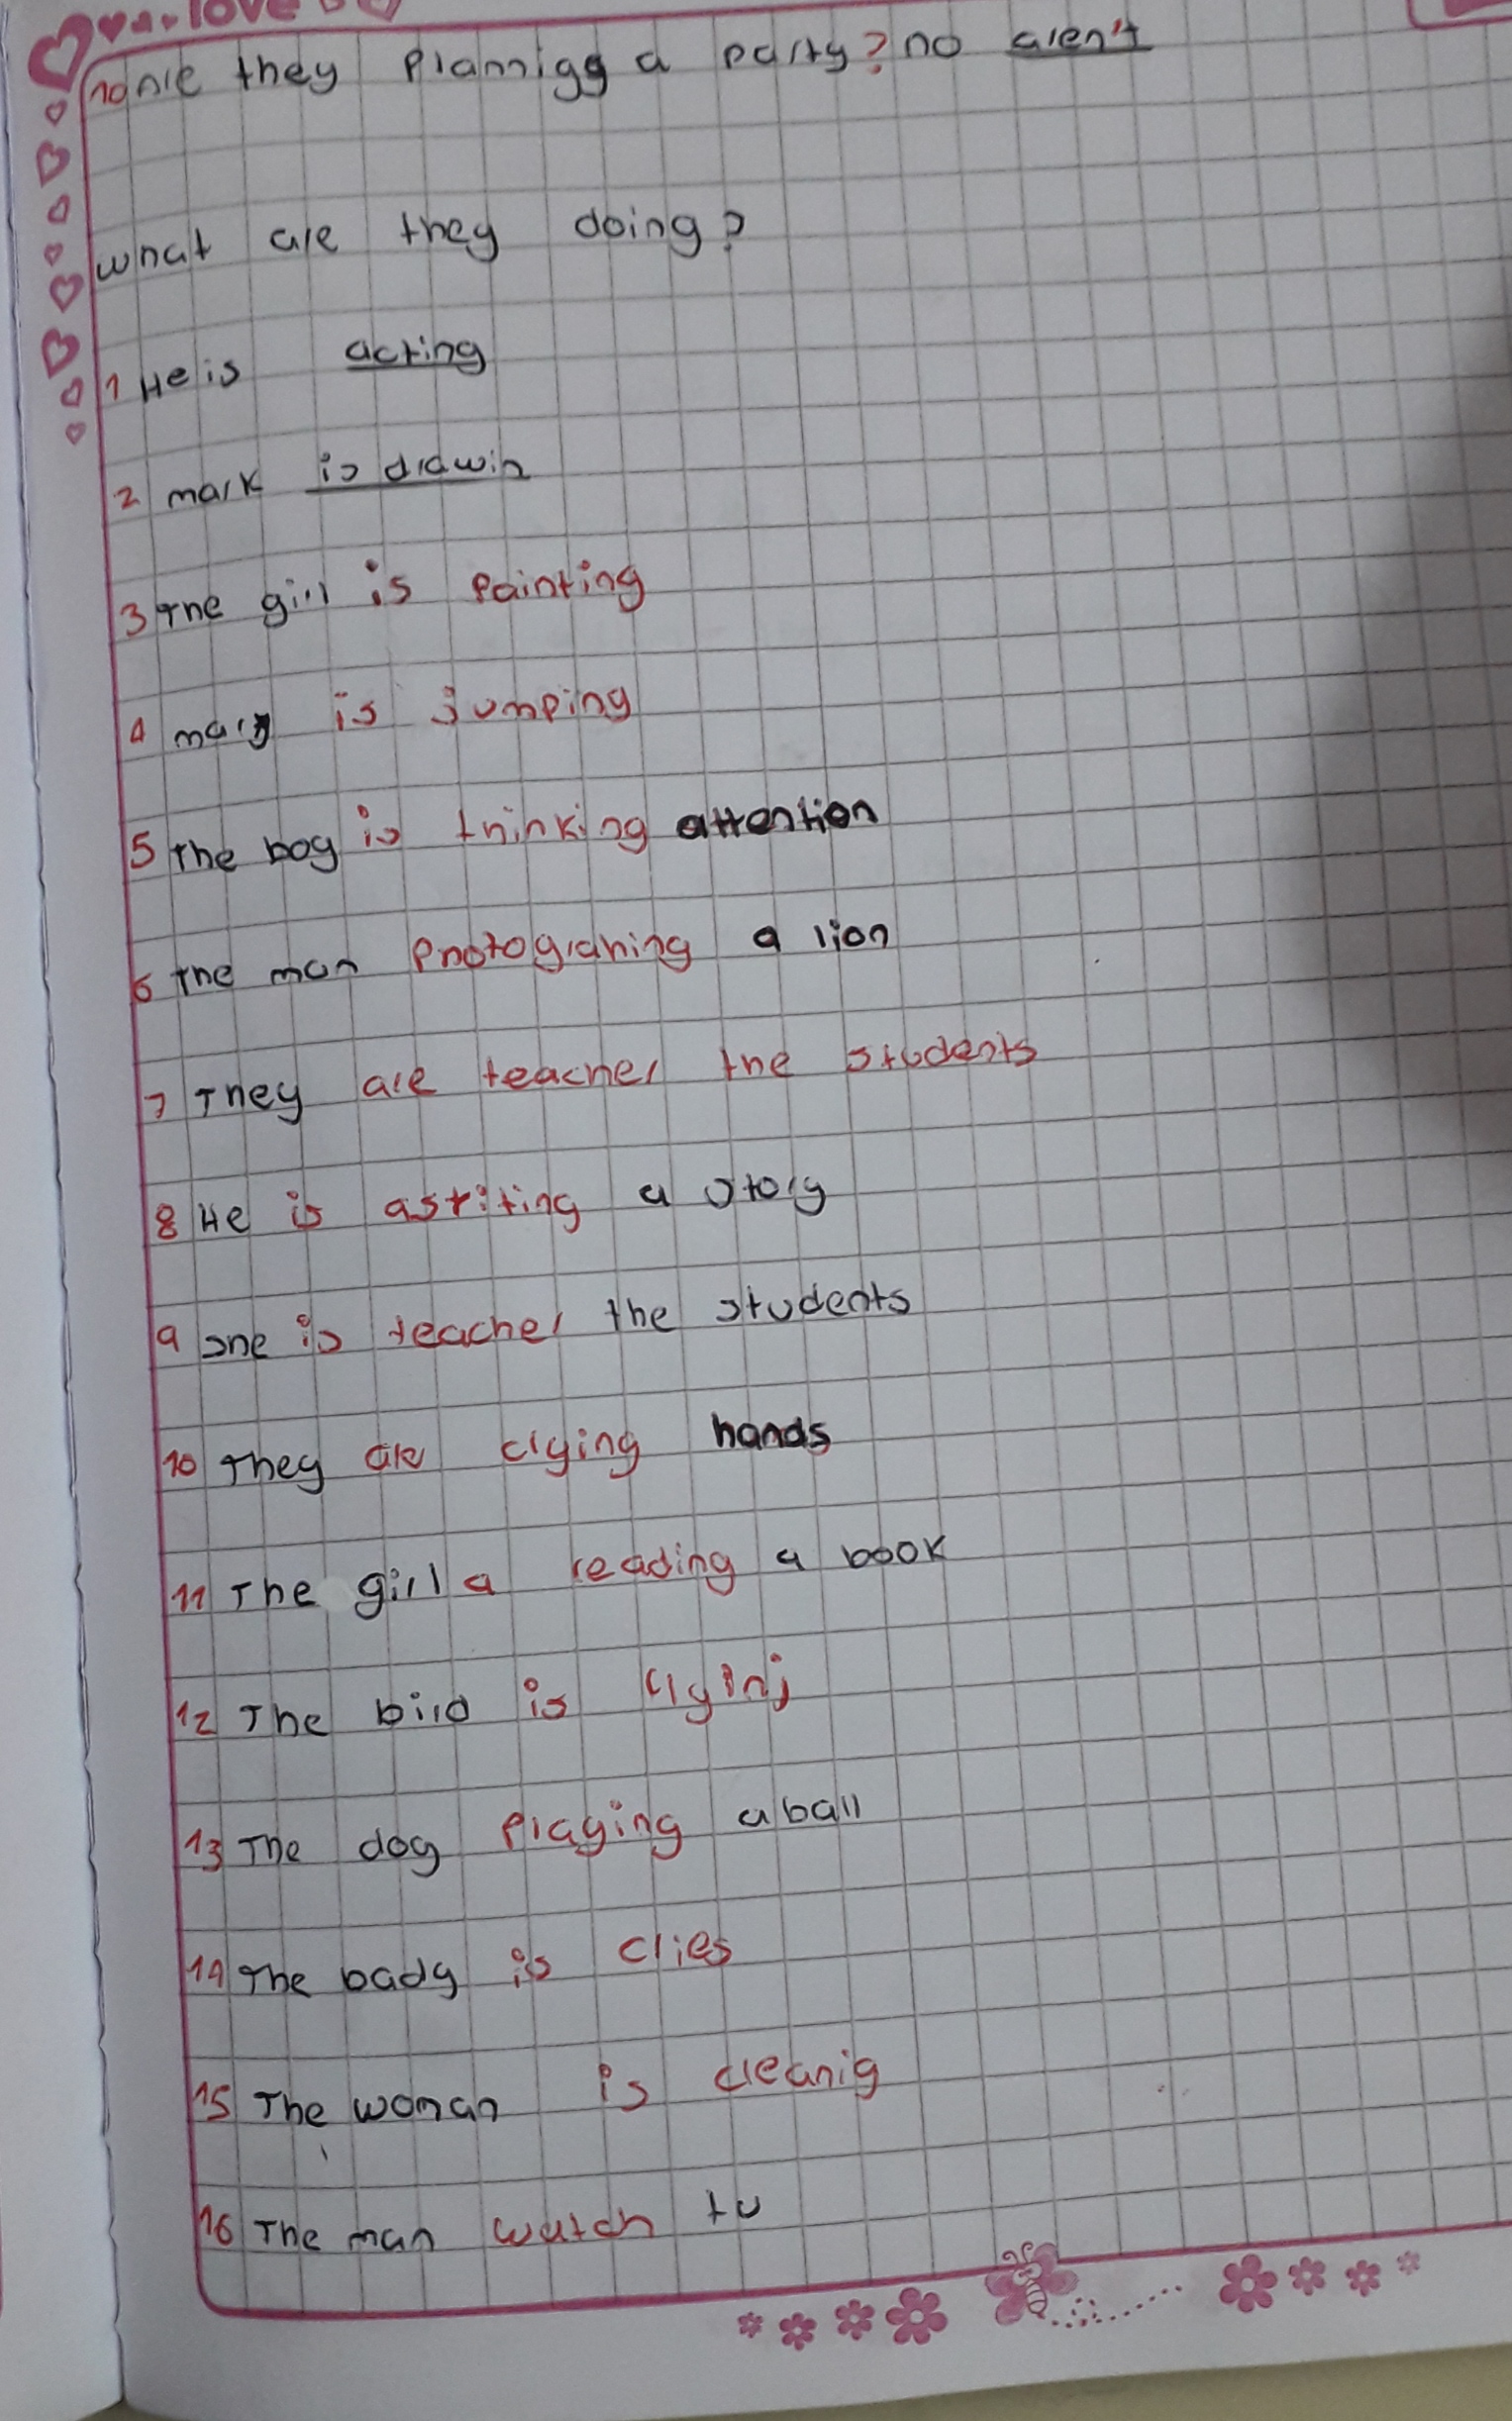 love
10 are they Plannigg a party? no aren't
what are they doing?
1 He is acting
2 mark is drawin
3 The girl is Painting
4 mary is jumping
5 The boy is thinking attention
6 The man Photograhing a lion
7 They are teacher the students
8 He is astiting a story
9 she is teacher the students
10 They are crying hands
11 The girl a reading a book
12 The bird is flying
13 The dog Playing a ball
14 The bady is cries
15 The woman is cleanig
16 The man watch tv